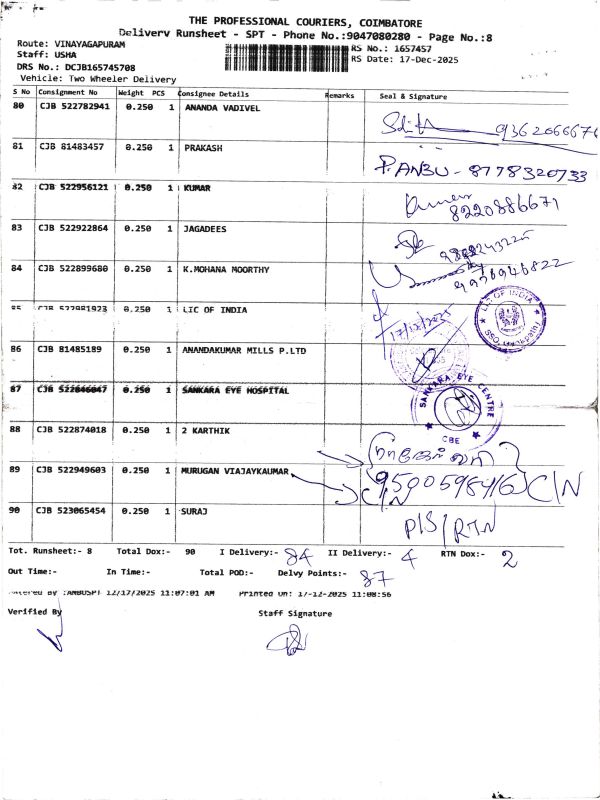 THE PROFESSIONAL COURIERS, COIMBATORE
Delivery Runsheet - SPT - Phone No.:9047080280 - Page No.:8
Route: VINAYAGAPURAM
RS No.: 1657457
Staff: USHA
RS Date: 17-Dec-2025
DRS No.: DCJB165745708
Vehicle: Two Wheeler Delivery
S No Consignment No Weight PCS Consignee Details Remarks Seal & Signature
80 CJB 522782941 0.250 1 ANANDA VADIVEL
81 CJB 81483457 0.250 1 PRAKASH
P. ANBU - 8778320733
82 CJB 522956121 0.250 1 KUMAR
Kumar
8220886671
83 CJB 522922864 0.250 1 JAGADEES
84 CJB 522899680 0.250 1 K.MOHANA MOORTHY
9976946822
85 CJB 522981923 0.250 1 LIC OF INDIA
17/12/2025
LIC OF INDIA
86 CJB 81485189 0.250 1 ANANDAKUMAR MILLS P.LTD
87 CJB 522846047 0.250 1 SANKARA EYE HOSPITAL
SANKARA EYE CENTRE
CBE
88 CJB 522874018 0.250 1 2 KARTHIK
89 CJB 522949603 0.250 1 MURUGAN VIAJAYKUMAR
9500598416 C/N
C/N
90 CJB 523065454 0.250 1 SURAJ
P/S/RTN
Tot. Runsheet:- 8 Total Dox:- 90 I Delivery:- 84 II Delivery:- 4 RTN Dox:- 2
Out Time:- In Time:- Total POD:- Delvy Points:- 87
Entered By :ANBUSPT 12/17/2025 11:07:01 AM Printed On: 17-12-2025 11:08:56
Verified By Staff Signature